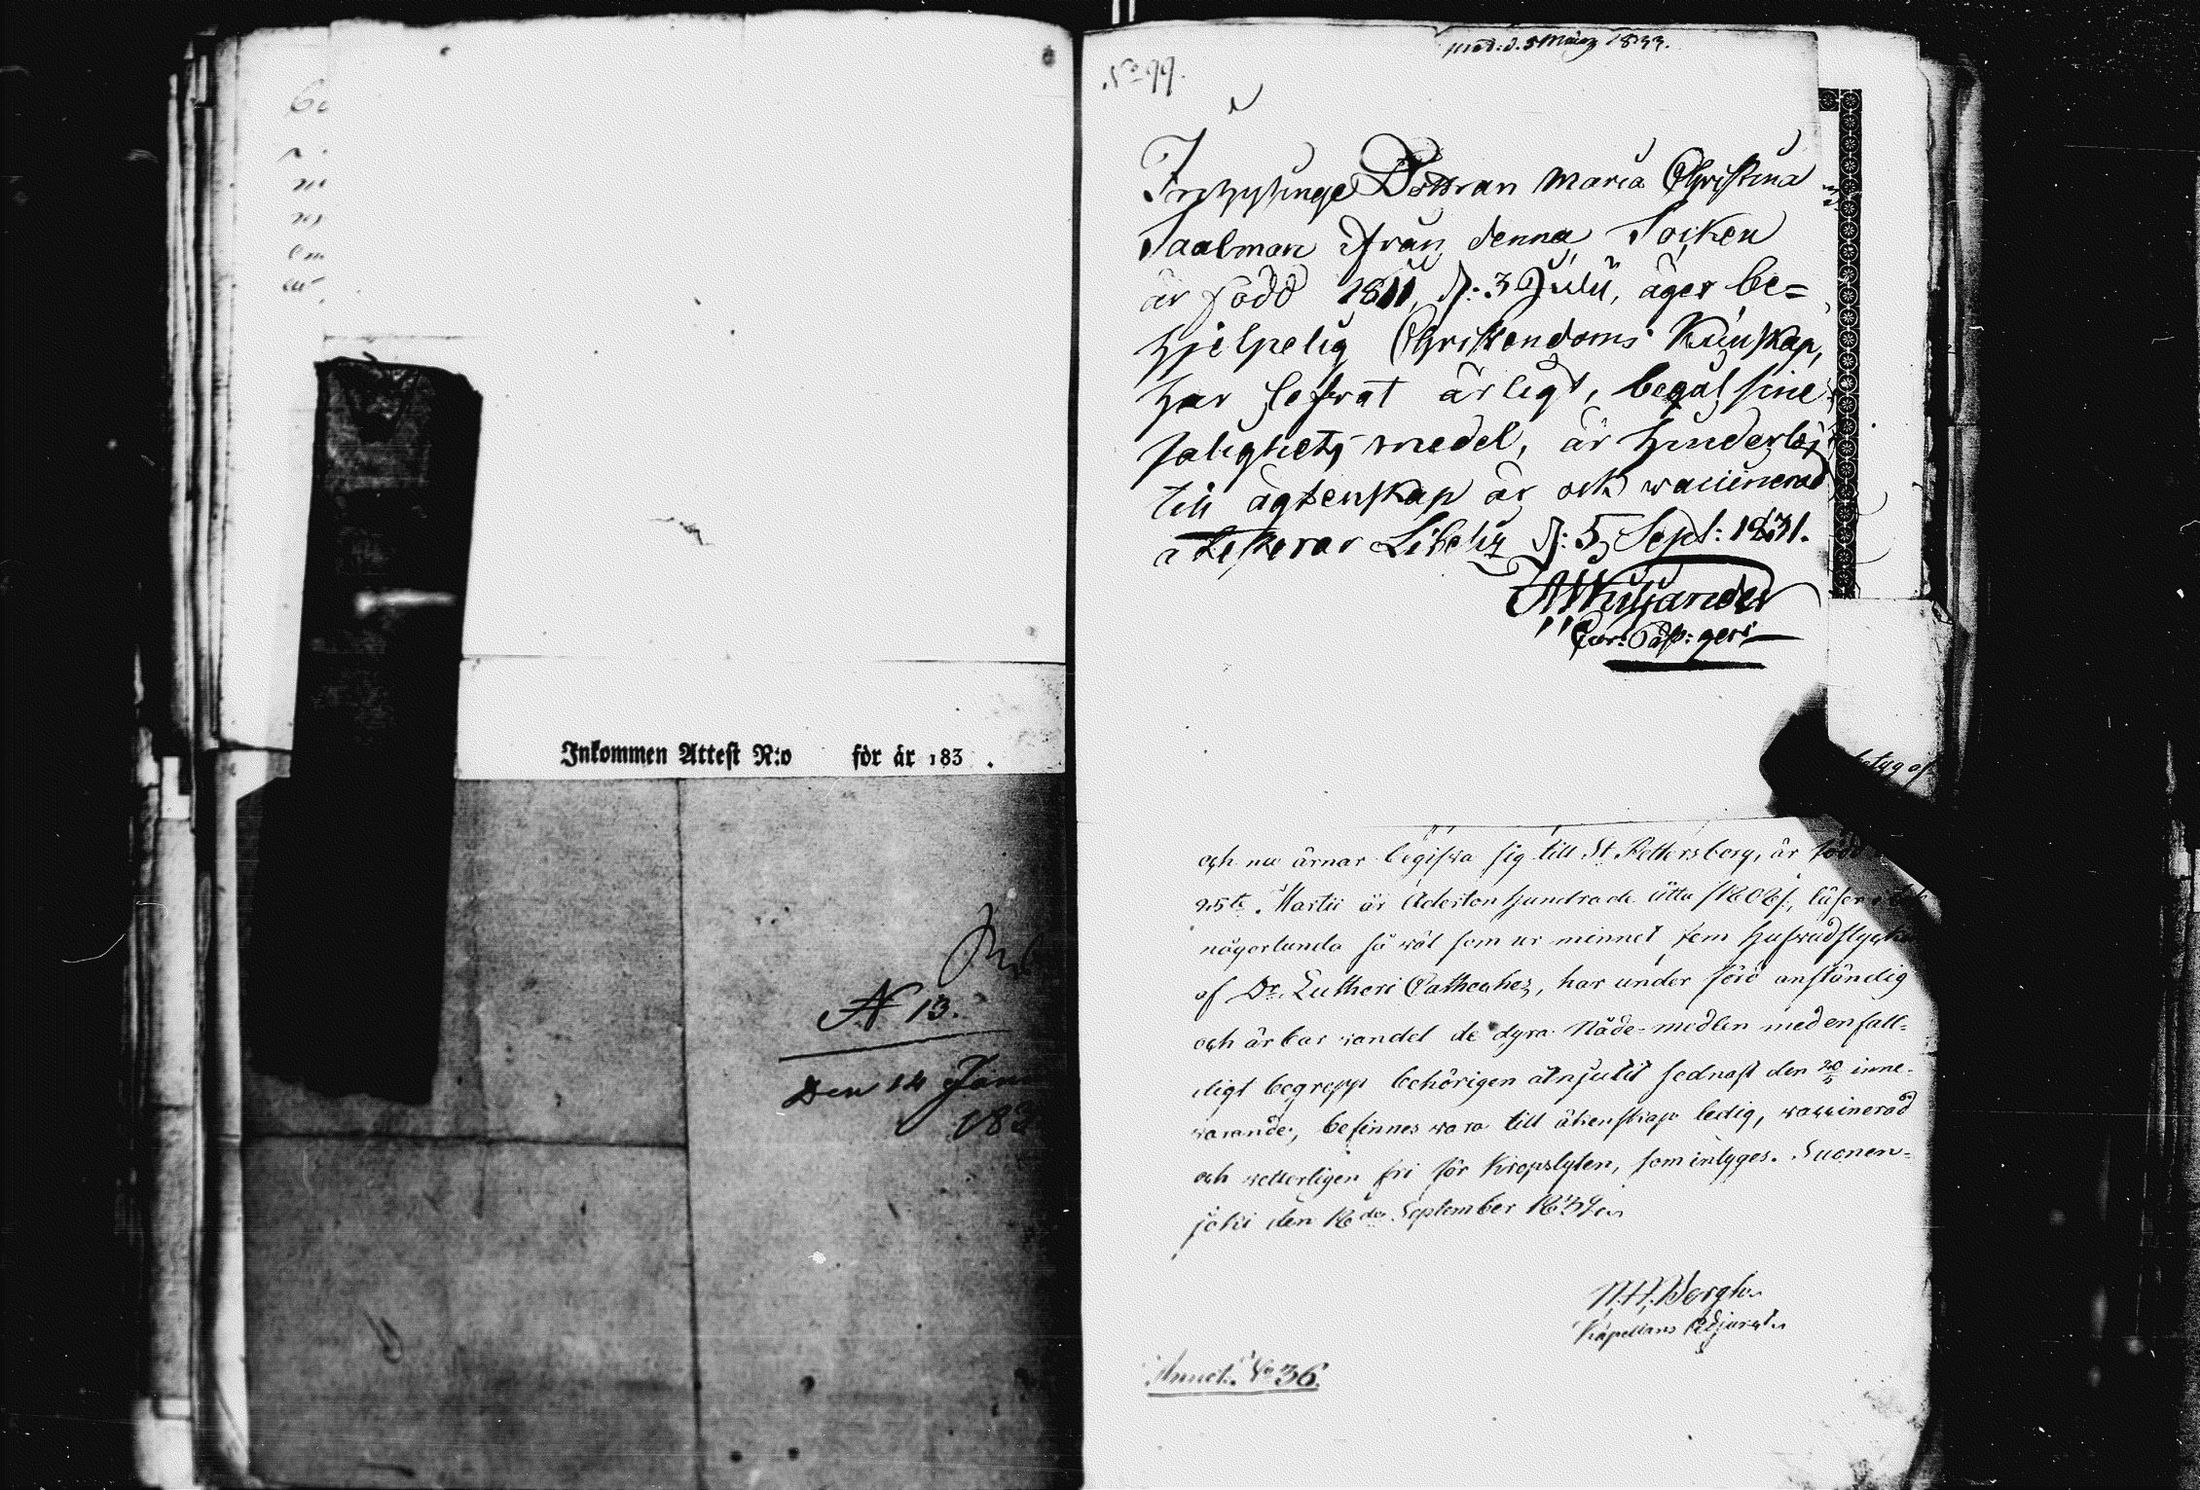 Inkommen Attest N:o för år 183 .
N 13.
Den 14 Jan
183
prod: d. 5 März 1833.
No 99.
Inhysinge Dottran Maria Christina
Saalman ifrån denna Socken
är född 1811, d: 3 Julii, äger be=
hjelpelig Christendoms Kunskap,
har lefwat ärligt, begåt sine
salighets medel, är hinderlös
till ägtenskap är ock waccinerad
attesterar Libelitz d: 5 Sept: 1831.
Kiljander
betyg af
och nu ärnar begifwa sig till St Pettersborg, är född
25te Martii år Adertonhundrade åtta /1808/, läser i bok
någorlunda så wäl som ur minnet fem hufwudstycken
af Dr. Lutheri Catheches, har under förd anständig
och ärbar wandel de dyra Nåde-medlen med enfal-
digt begrepp behörigen åtnjutit sednast den inne-
warande, befinnes wara till äktenskap ledig, waccinerad
och wetterligen fri för Kropslyten, som intyges. Suonen-
joki den 16de September 1834
Kapellans Adjunct
Annot. No 36.